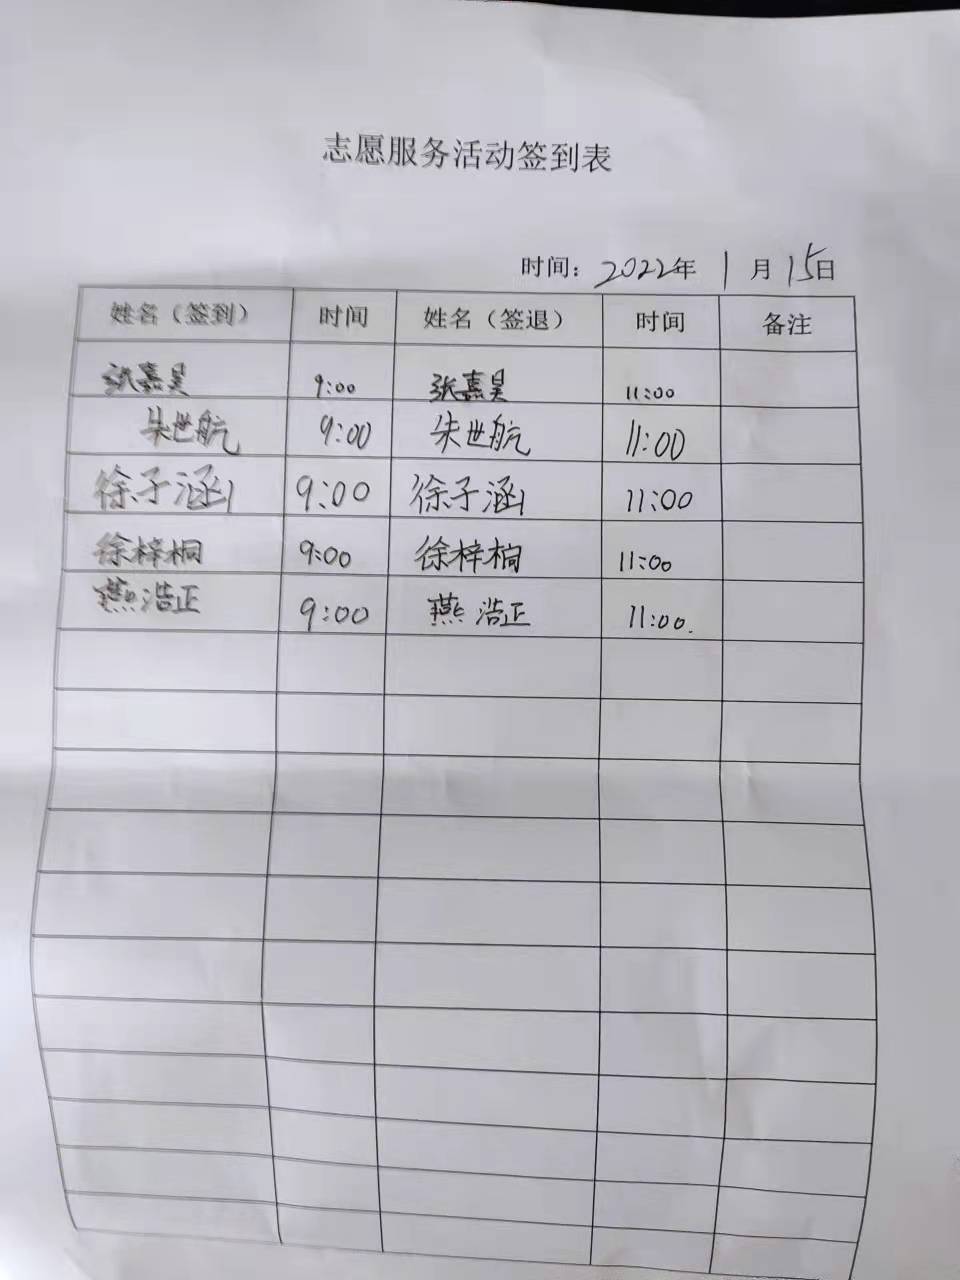 志愿服务活动签到表
时间：2022年 1月15日
姓名（签到） 时间 姓名（签退） 时间 备注
张嘉昊 9:00 张嘉昊 11:00
朱世航 9:00 朱世航 11:00
徐子涵 9:00 徐子涵 11:00
徐梓桐 9:00 徐梓桐 11:00
燕浩正 9:00 燕浩正 11:00.